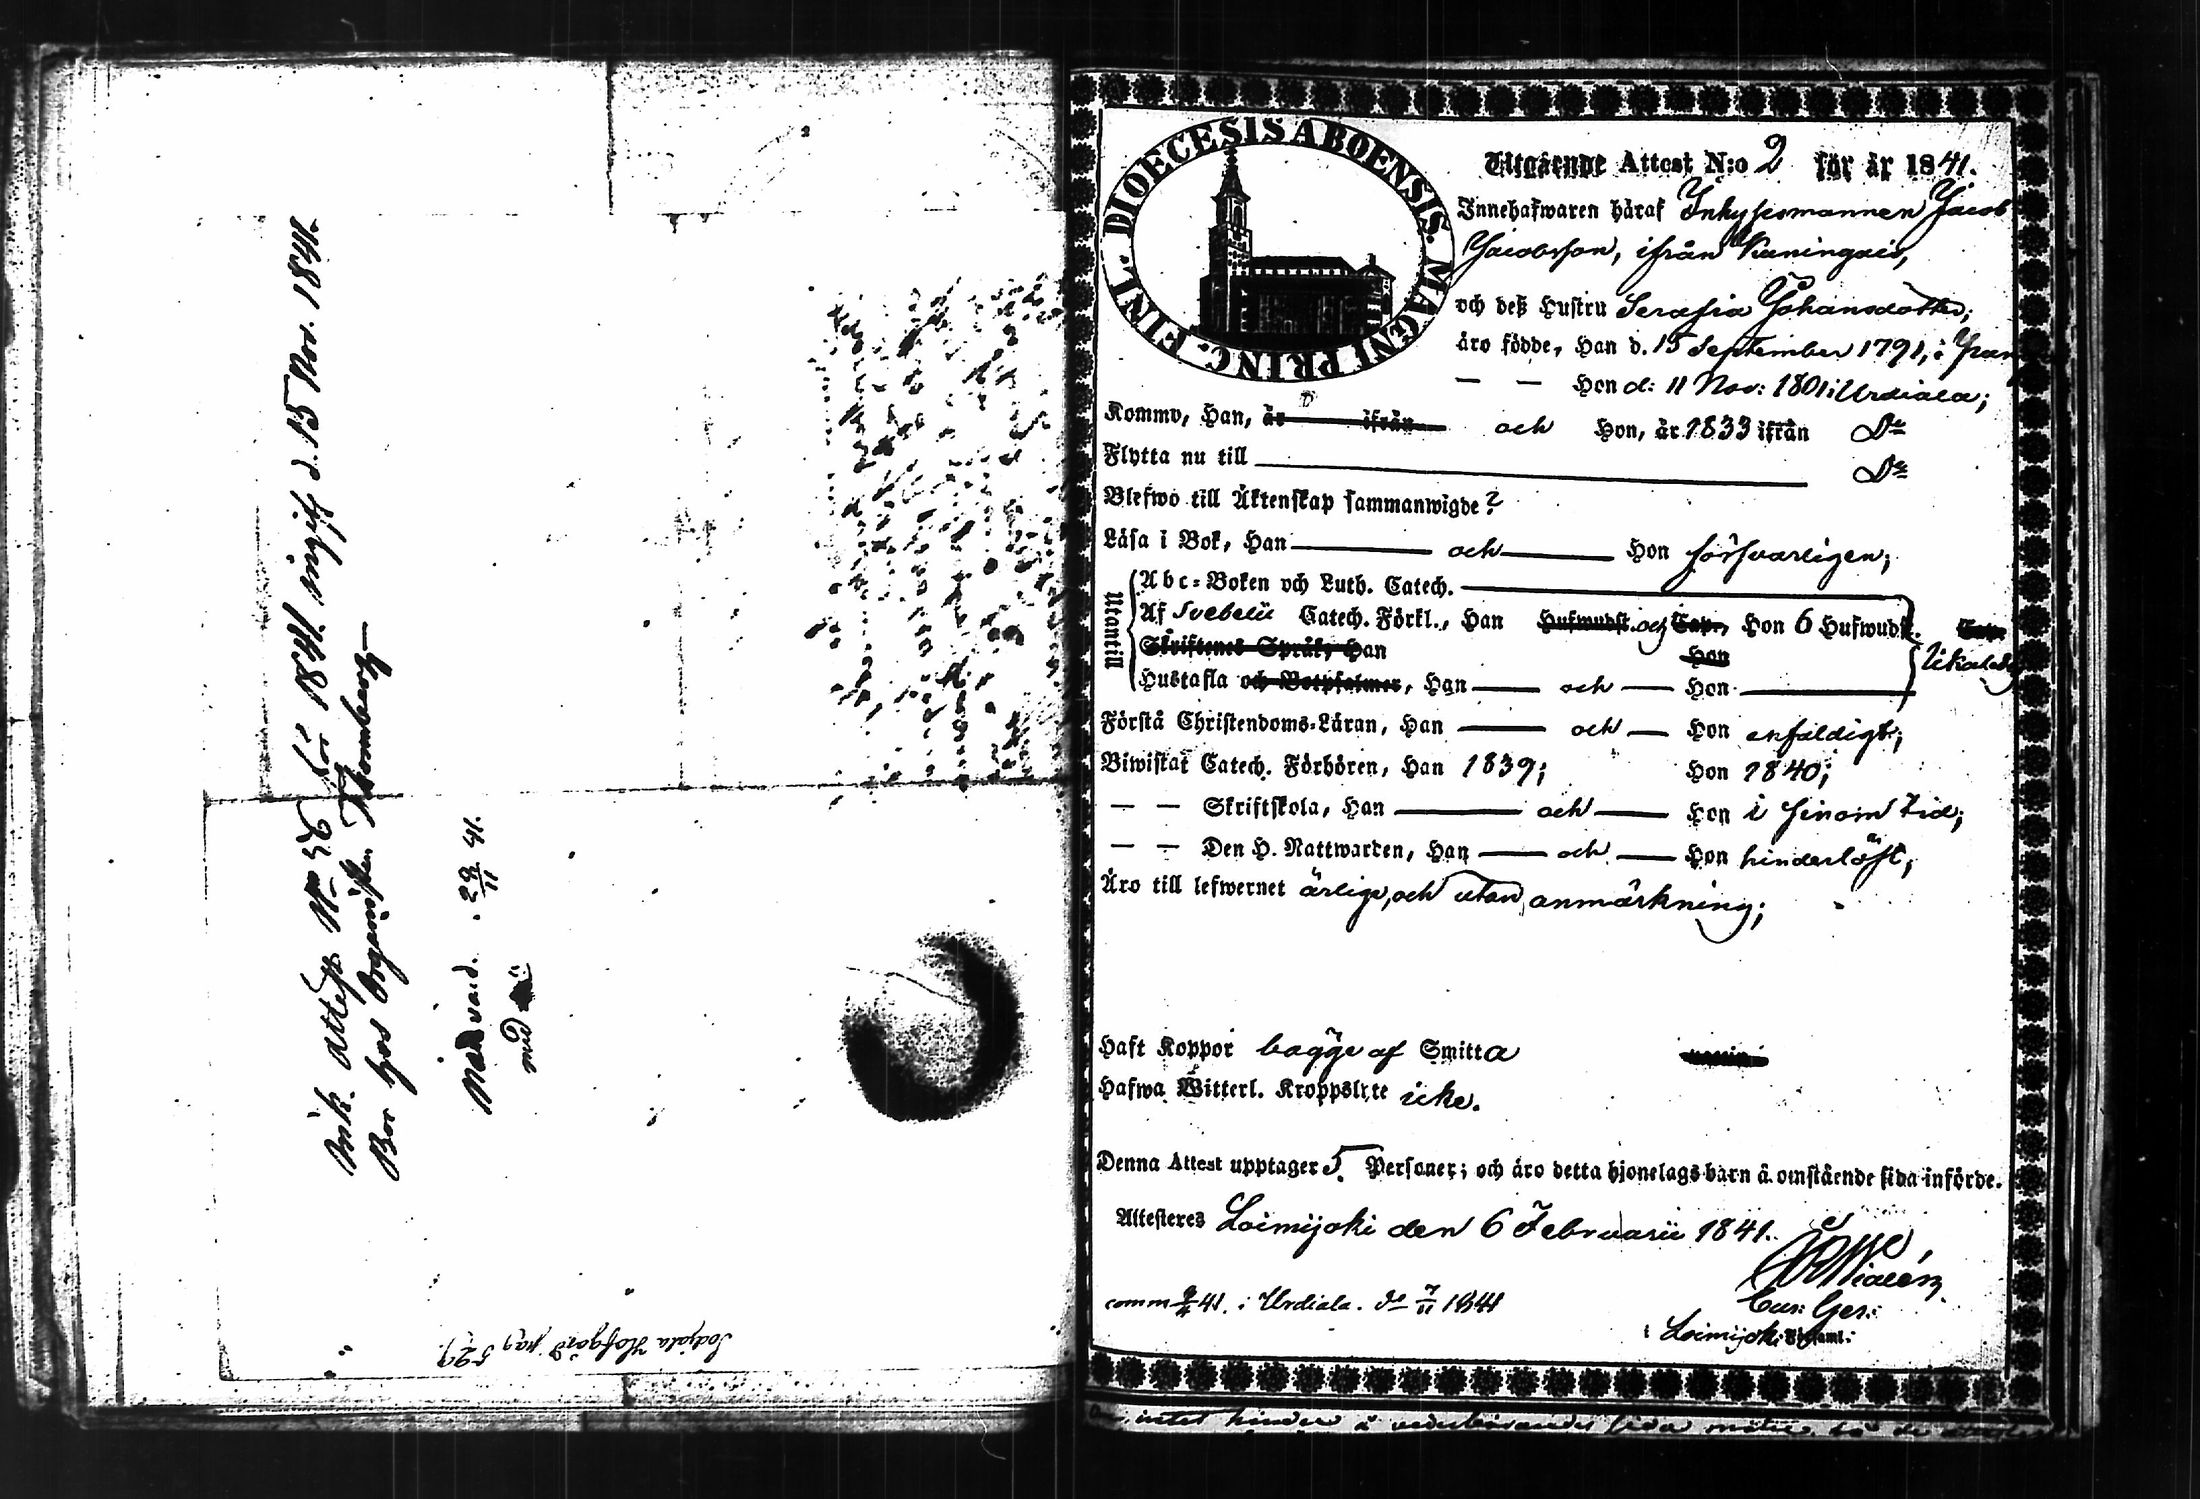 Ink. Attest No 56 för 1841. ingift d. 15 Nov. 1841.
Bor hos Orgenisten Thomberg
vard. 29/11 41.
med
Sodjala Hofgård pag 529.
FINL. DIOECESIS ABOENSIS. MAGNI PRINC.
Utgående Attest N:o 2 för år 1841.
Innehafwaren häraf Inhysesmannen Jacob
Jacobsson, ifrån Kaningais,
och deß Hustru Serafia Johansdotter;
äro födde, Han d. 15 September 1791, i
— — Hon d: 11 Nov: 1801 i Urdiala;
Kommo, Han, är ifrån och Hon, är 1833 ifrån Do
Flytta nu till Do
Blefwo till Äktenskap sammanwigde?
Läsa i Bok, Han — och — Hon försvarligen;
Utantill
Abc-Boken och Luth. Catech.
Af Svebelii Catech. Förkl., Han Hufwudst. och Cap., Hon 6 Hufwudst. Cap.
Skriftenes Språk, Han Hon
Hustafla och Botpsalmer, Han — och — Hon
Förstå Christendoms-Läran, Han — och — Hon enfaldigt;
Biwistat Catech. Förhören, Han 1839; Hon 1840;
— — Skriftskola, Han — och — Hon i sinom tid;
— — Den H. Nattwarden, Han — och — Hon hinderlöst;
Äro till lefwernet ärlige, och utan anmärkning;
Haft Koppor bägge af Smitta
Hafwa Witterl. Kroppslyte icke.
Denna Attest upptager 5. Personer; och äro detta hjonelags barn å omstående sida införde.
Attesteres Loimijoki den 6 Februarii 1841.
comm 41. i Urdiala. do 7/11 1841
i Loimijoki
intet hinder å vederbörandes sida möter, så